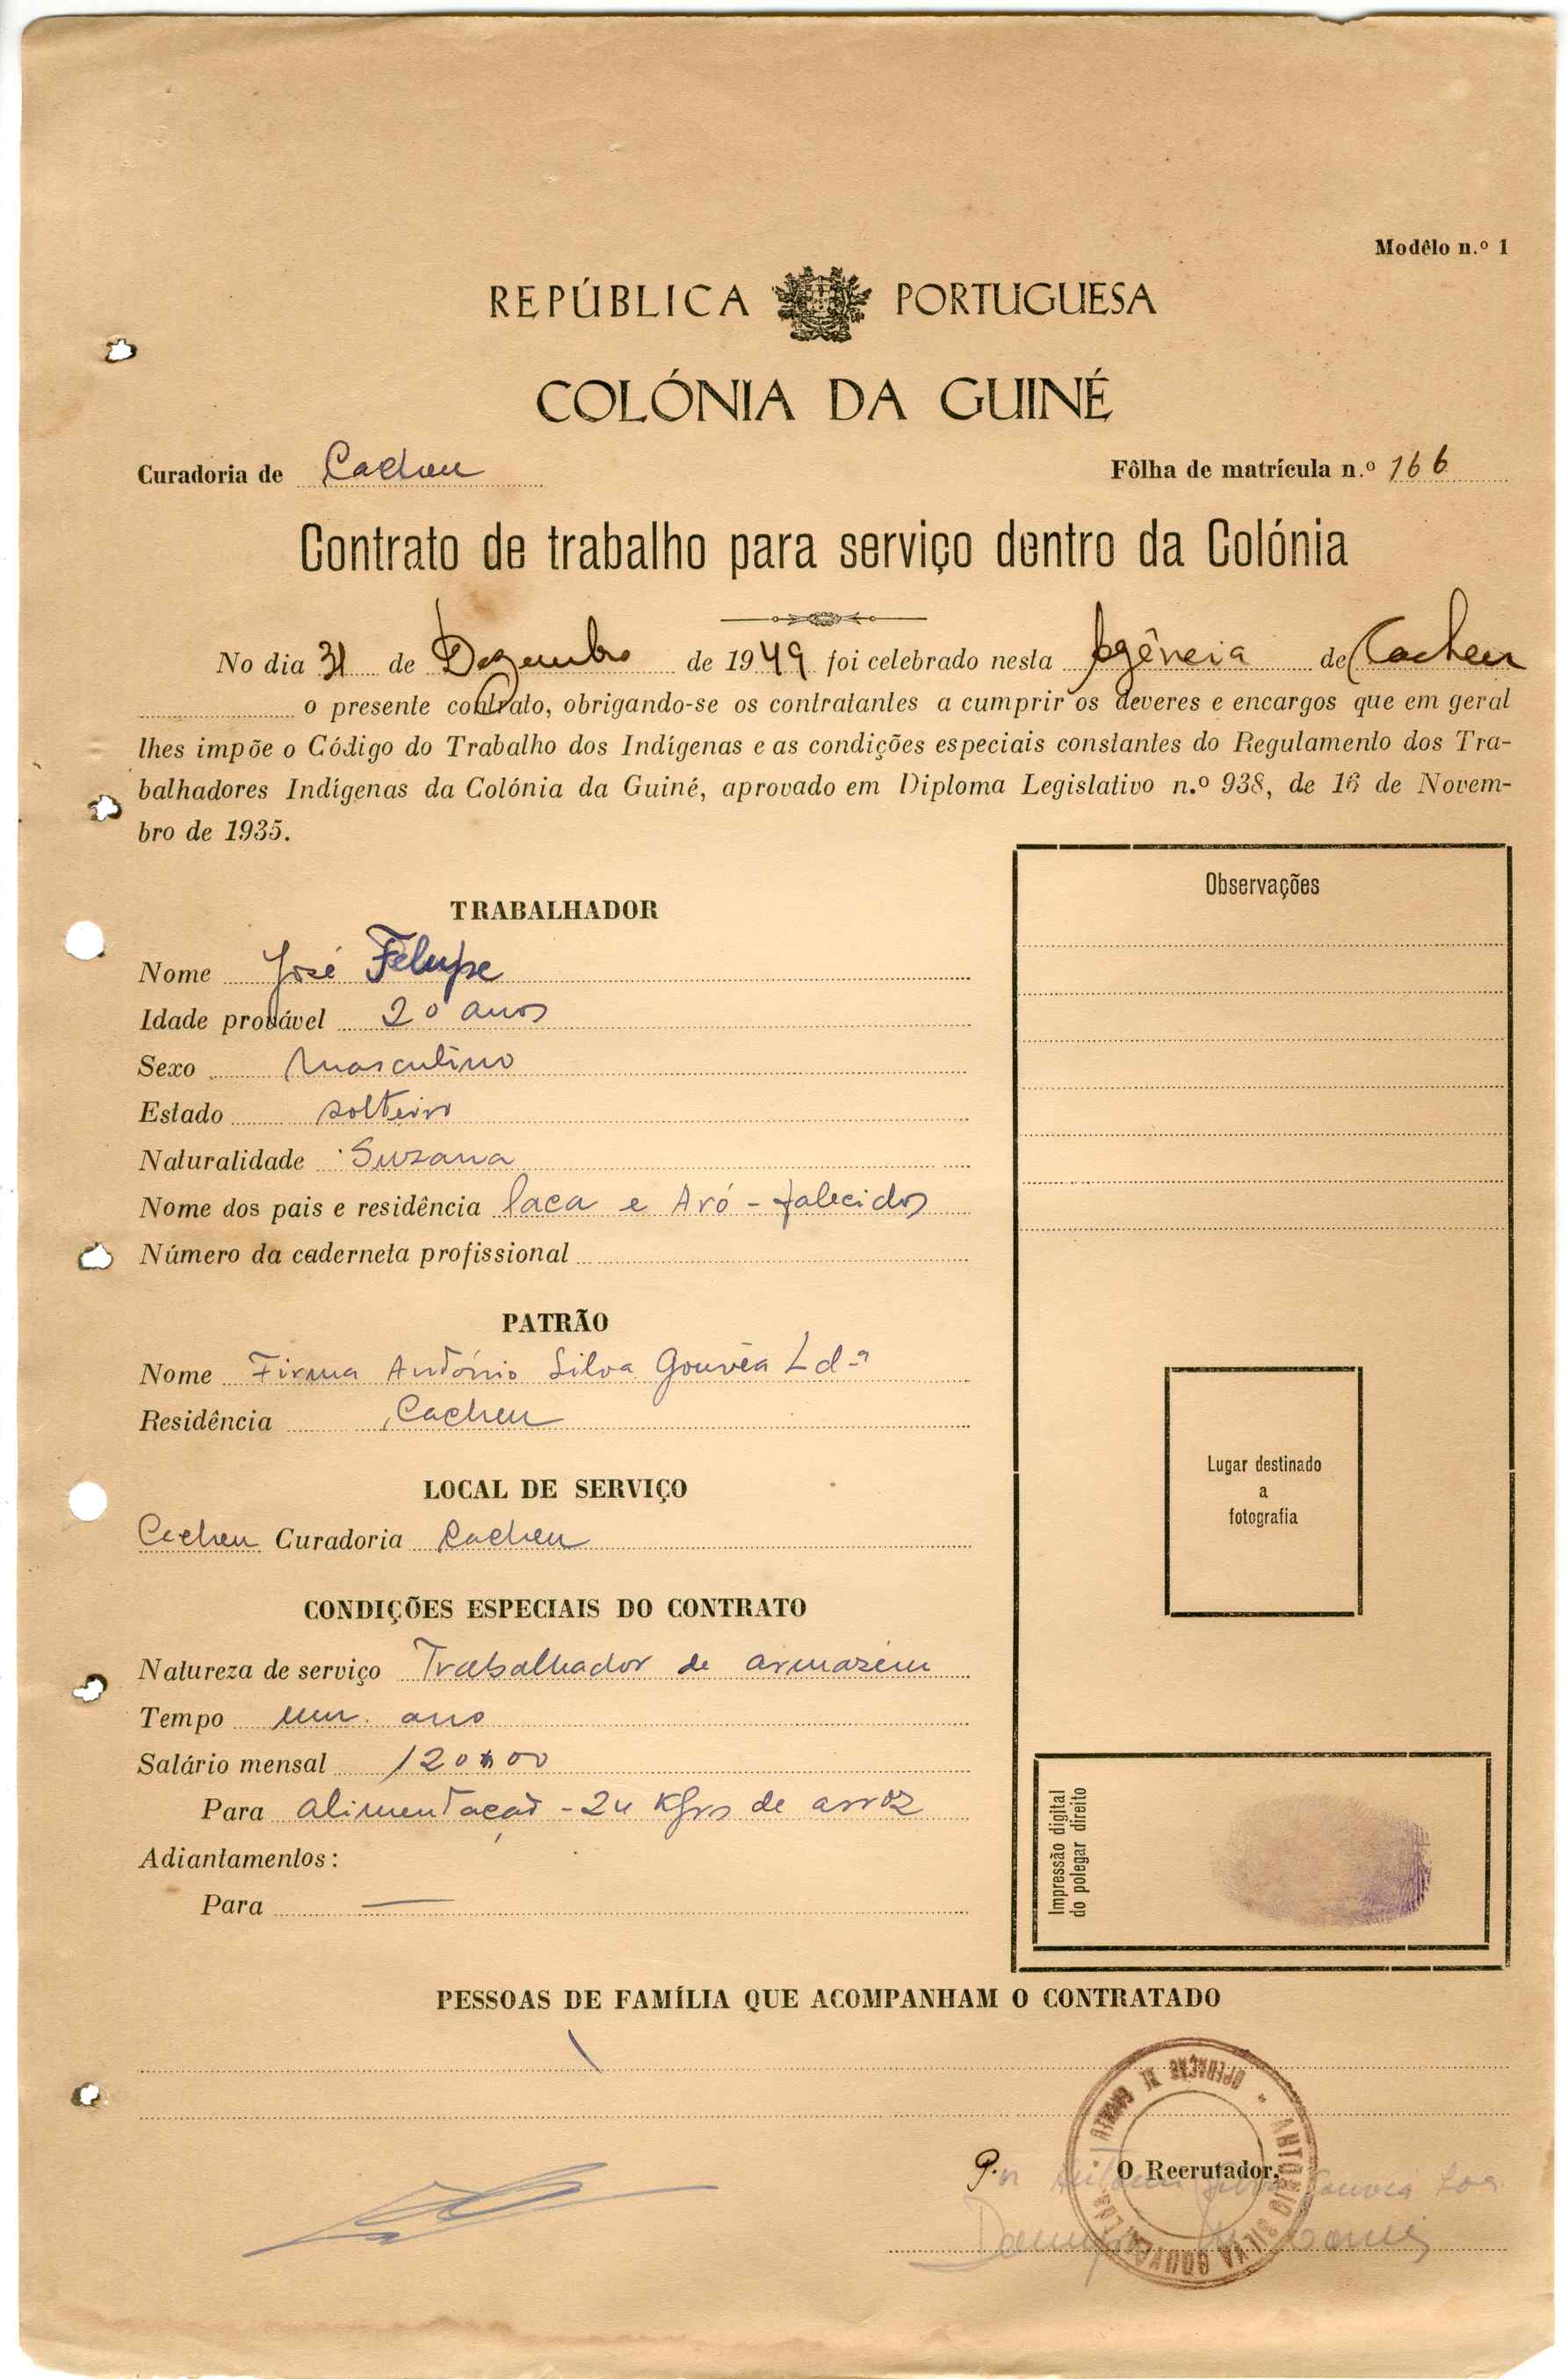 Modêlo n.º 1
REPÚBLICA PORTUGUESA
COLÓNIA DA GUINÉ
Curadoria de Cacheu Fôlha de matrícula n.º 166
Contrato de trabalho para serviço dentro da Colónia
No dia 31 de Dezembro de 1949 foi celebrado nesta Agência de Cacheu
o presente contrato, obrigando-se os contratantes a cumprir os deveres e encargos que em geral
lhes impõe o Código do Trabalho dos Indígenas e as condições especiais constantes do Regulamento dos Tra-
balhadores Indígenas da Colónia da Guiné, aprovado em Diploma Legislativo n.º 938, de 16 de Novem-
bro de 1935.
TRABALHADOR
Nome José Felupe
Idade provável 20 anos
Sexo Masculino
Estado solteiro
Naturalidade Suzana
Nome dos pais e residência e Aró - falecidos
Número da caderneta profissional
PATRÃO
Nome Firma António Silva Gouvêa Ld.ª
Residência Cacheu
LOCAL DE SERVIÇO
Cacheu Curadoria Cacheu
CONDIÇÕES ESPECIAIS DO CONTRATO
Natureza de serviço Trabalhador de armazém
Tempo um ano
Salário mensal 120$00
Para alimentação - 24 Kgrs de arroz
Adiantamentos:
Para —
Observações
Lugar destinado
a
fotografia
Impressão digital
do polegar direito
PESSOAS DE FAMÍLIA QUE ACOMPANHAM O CONTRATADO
O Recrutador,
ANTONIO SILVA GOUVEA, LDA